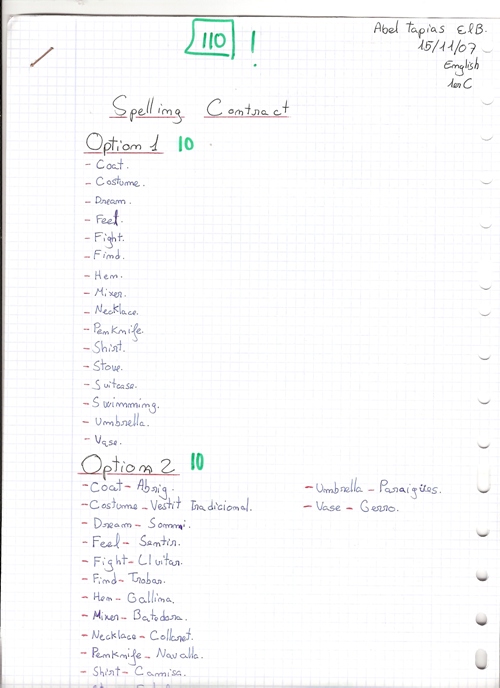 110 !
Abel Tapias E2B.
15/11/07
English
1er C
Spelling Contract
Option 1 10
- Coat.
- Costume.
- Dream.
- Feel.
- Fight.
- Find.
- Hen.
- Mixer.
- Necklace.
- Penknife.
- Shirt.
- Stove.
- Suitcase.
- Swimming.
- Umbrella.
- Vase.
Option 2 10
- Coat - Abrig.
- Costume - Vestit Tradicional.
- Dream - Somni.
- Feel - Sentir.
- Fight - Lluitar.
- Find - Trobar.
- Hen - Gallina.
- Mixer - Batedora.
- Necklace - Collaret.
- Penknife - Navalla.
- Shirt - Camisa.
- Umbrella - Paraigües.
- Vase - Gerro.